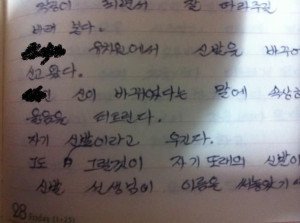 적응이 되면서 잘 따라주길
바래 본다.
유치원에서 신발을 바꿔
신고 왔다.
신이 바뀌었다는 말에 속상해
울음을 터트린다.
자기 신발이라고 우긴다.
그도 그럴것이 자기 또래의 신발이
신발 선생님이 이름을 써놓았기에
28